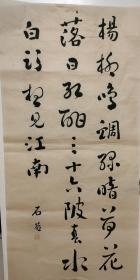 楊柳鳴蜩綠暗荷花
落日紅酣三十六陂春水
白頭想見江南
石